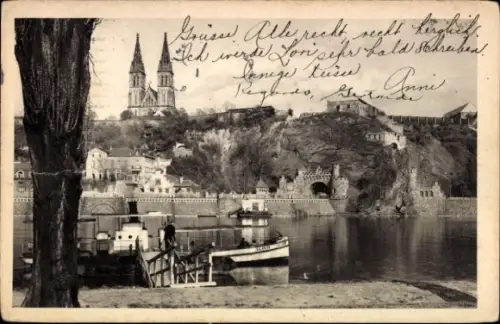 Grüsse Alle recht recht herzlich,
Ich werde Lori sehr bald schreiben
Innige Küsse Anni
Gertrude